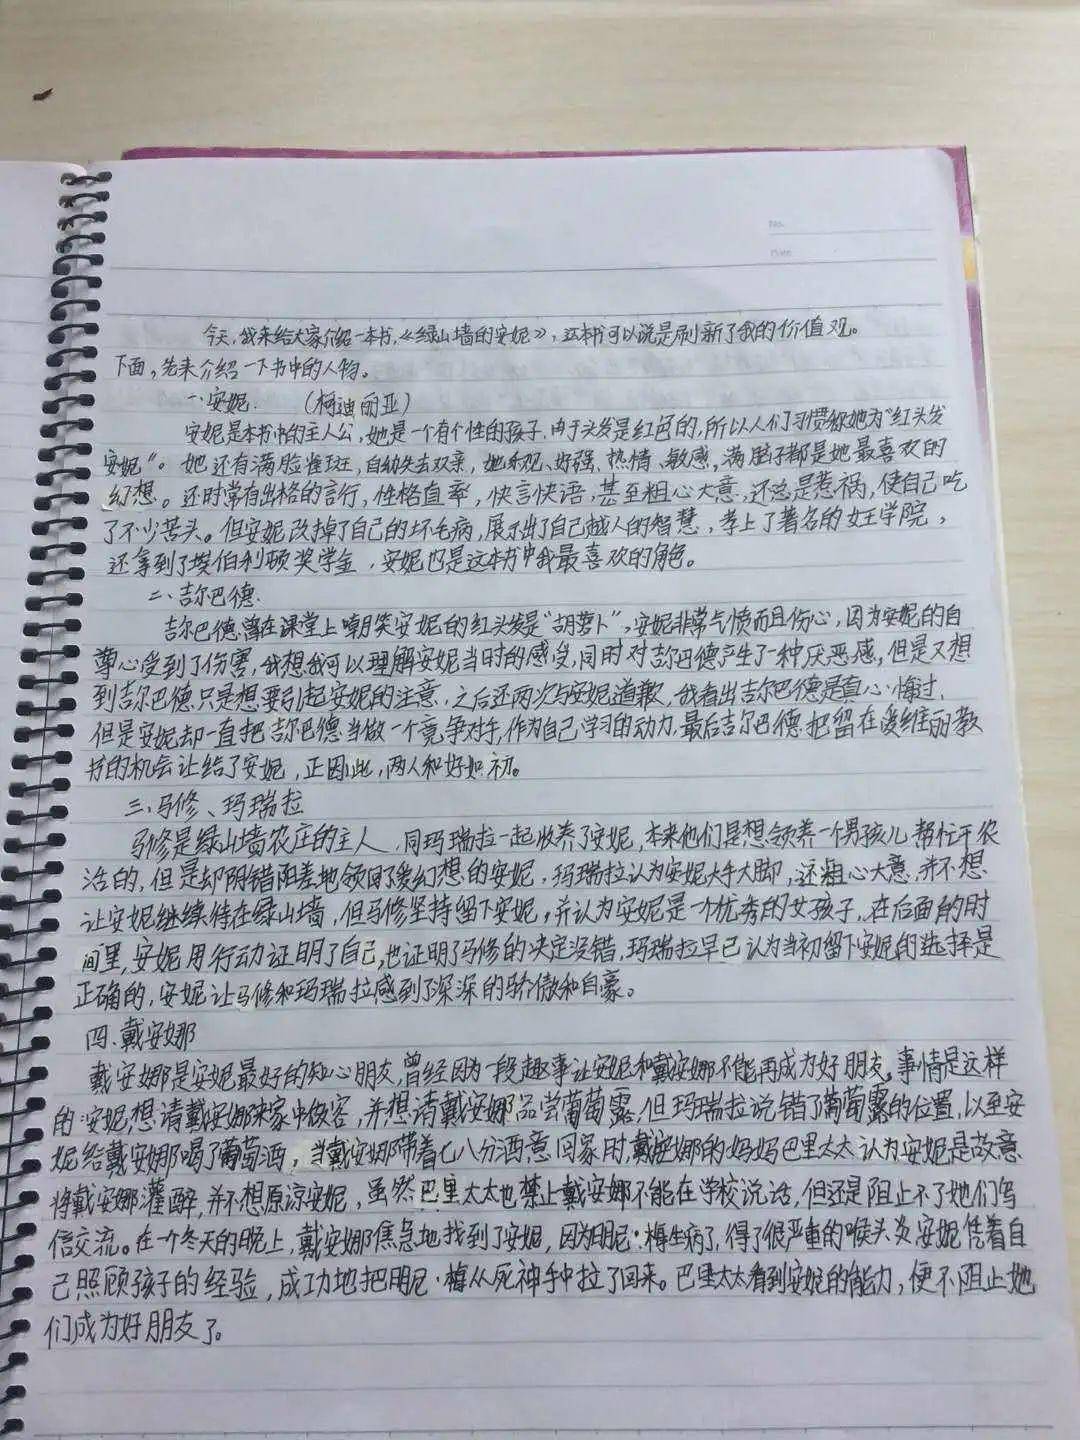 No.
Date
今天,我来给大家介绍一本书,《绿山墙的安妮》,这本书可以说是刷新了我的价值观。
下面,先来介绍一下书中的人物。
一、安妮. (柯迪丽亚)
安妮是本书中的主人公,她是一个有个性的孩子.由于头发是红色的,所以人们习惯称她为“红头发
安妮”。她还有满脸雀斑,自幼失去双亲,她乐观、好强、热情、敏感,满脑子都是她最喜欢的
幻想。还时常有出格的言行,性格直率,快言快语,甚至粗心大意,还总是惹祸,使自己吃
了不少苦头。但安妮改掉了自己的坏毛病,展示出了自己越人的智慧,考上了著名的女王学院,
还拿到了埃伯利顿奖学金,安妮也是这本书中我最喜欢的角色。
二、吉尔巴德.
吉尔巴德曾在课堂上嘲笑安妮的红头发是“胡萝卜”,安妮非常气愤而且伤心,因为安妮的自
尊心受到了伤害,我想我可以理解安妮当时的感受,同时对吉尔巴德产生了一种厌恶感,但是又想
到吉尔巴德只是想要引起安妮的注意,之后还两次与安妮道歉,我看出吉尔巴德是真心悔过,
但是安妮却一直把吉尔巴德当做一个竞争对手,作为自己学习的动力,最后吉尔巴德把留在爱维丽教
书的机会让给了安妮,正因此,两人和好如初。
三、马修、玛瑞拉
马修是绿山墙农庄的主人,同玛瑞拉一起收养了安妮,本来他们是想领养一个男孩儿帮忙干农
活的,但是却阴错阳差地领回了爱幻想的安妮,玛瑞拉认为安妮大手大脚,还粗心大意,并不想
让安妮继续待在绿山墙,但马修坚持留下安妮,并认为安妮是一个优秀的女孩子,在后面的时
间里,安妮用行动证明了自己,也证明了马修的决定没错,玛瑞拉早已认为当初留下安妮的选择是
正确的,安妮让马修和玛瑞拉感到了深深的骄傲和自豪。
四.戴安娜
戴安娜是安妮最好的知心朋友,曾经因为一段趣事让安妮和戴安娜不能再成为好朋友,事情是这样
的:安妮想请戴安娜来家中做客,并想请戴安娜品尝葡萄露,但玛瑞拉说错了葡萄露的位置,以至安
妮给戴安娜喝了葡萄酒,当戴安娜带着七八分酒意回家时,戴安娜的妈妈巴里太太认为安妮是故意
将戴安娜灌醉,并不想原谅安妮,虽然巴里太太也禁止戴安娜不能在学校说话,但还是阻止不了她们写
信交流。在一个冬天的晚上,戴安娜焦急地找到了安妮,因为朋尼·梅生病了,得了很严重的喉头炎安妮凭着自
己照顾孩子的经验,成功地把朋尼·梅从死神手中拉了回来。巴里太太看到安妮的能力,便不阻止她
们成为好朋友了。